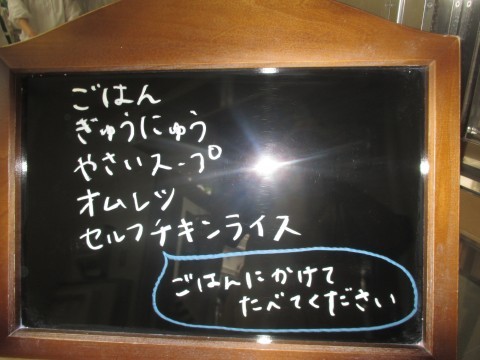 ごはん
ぎゅうにゅう
やさいスープ
オムレツ
セルフチキンライス
ごはんにかけて
たべてください